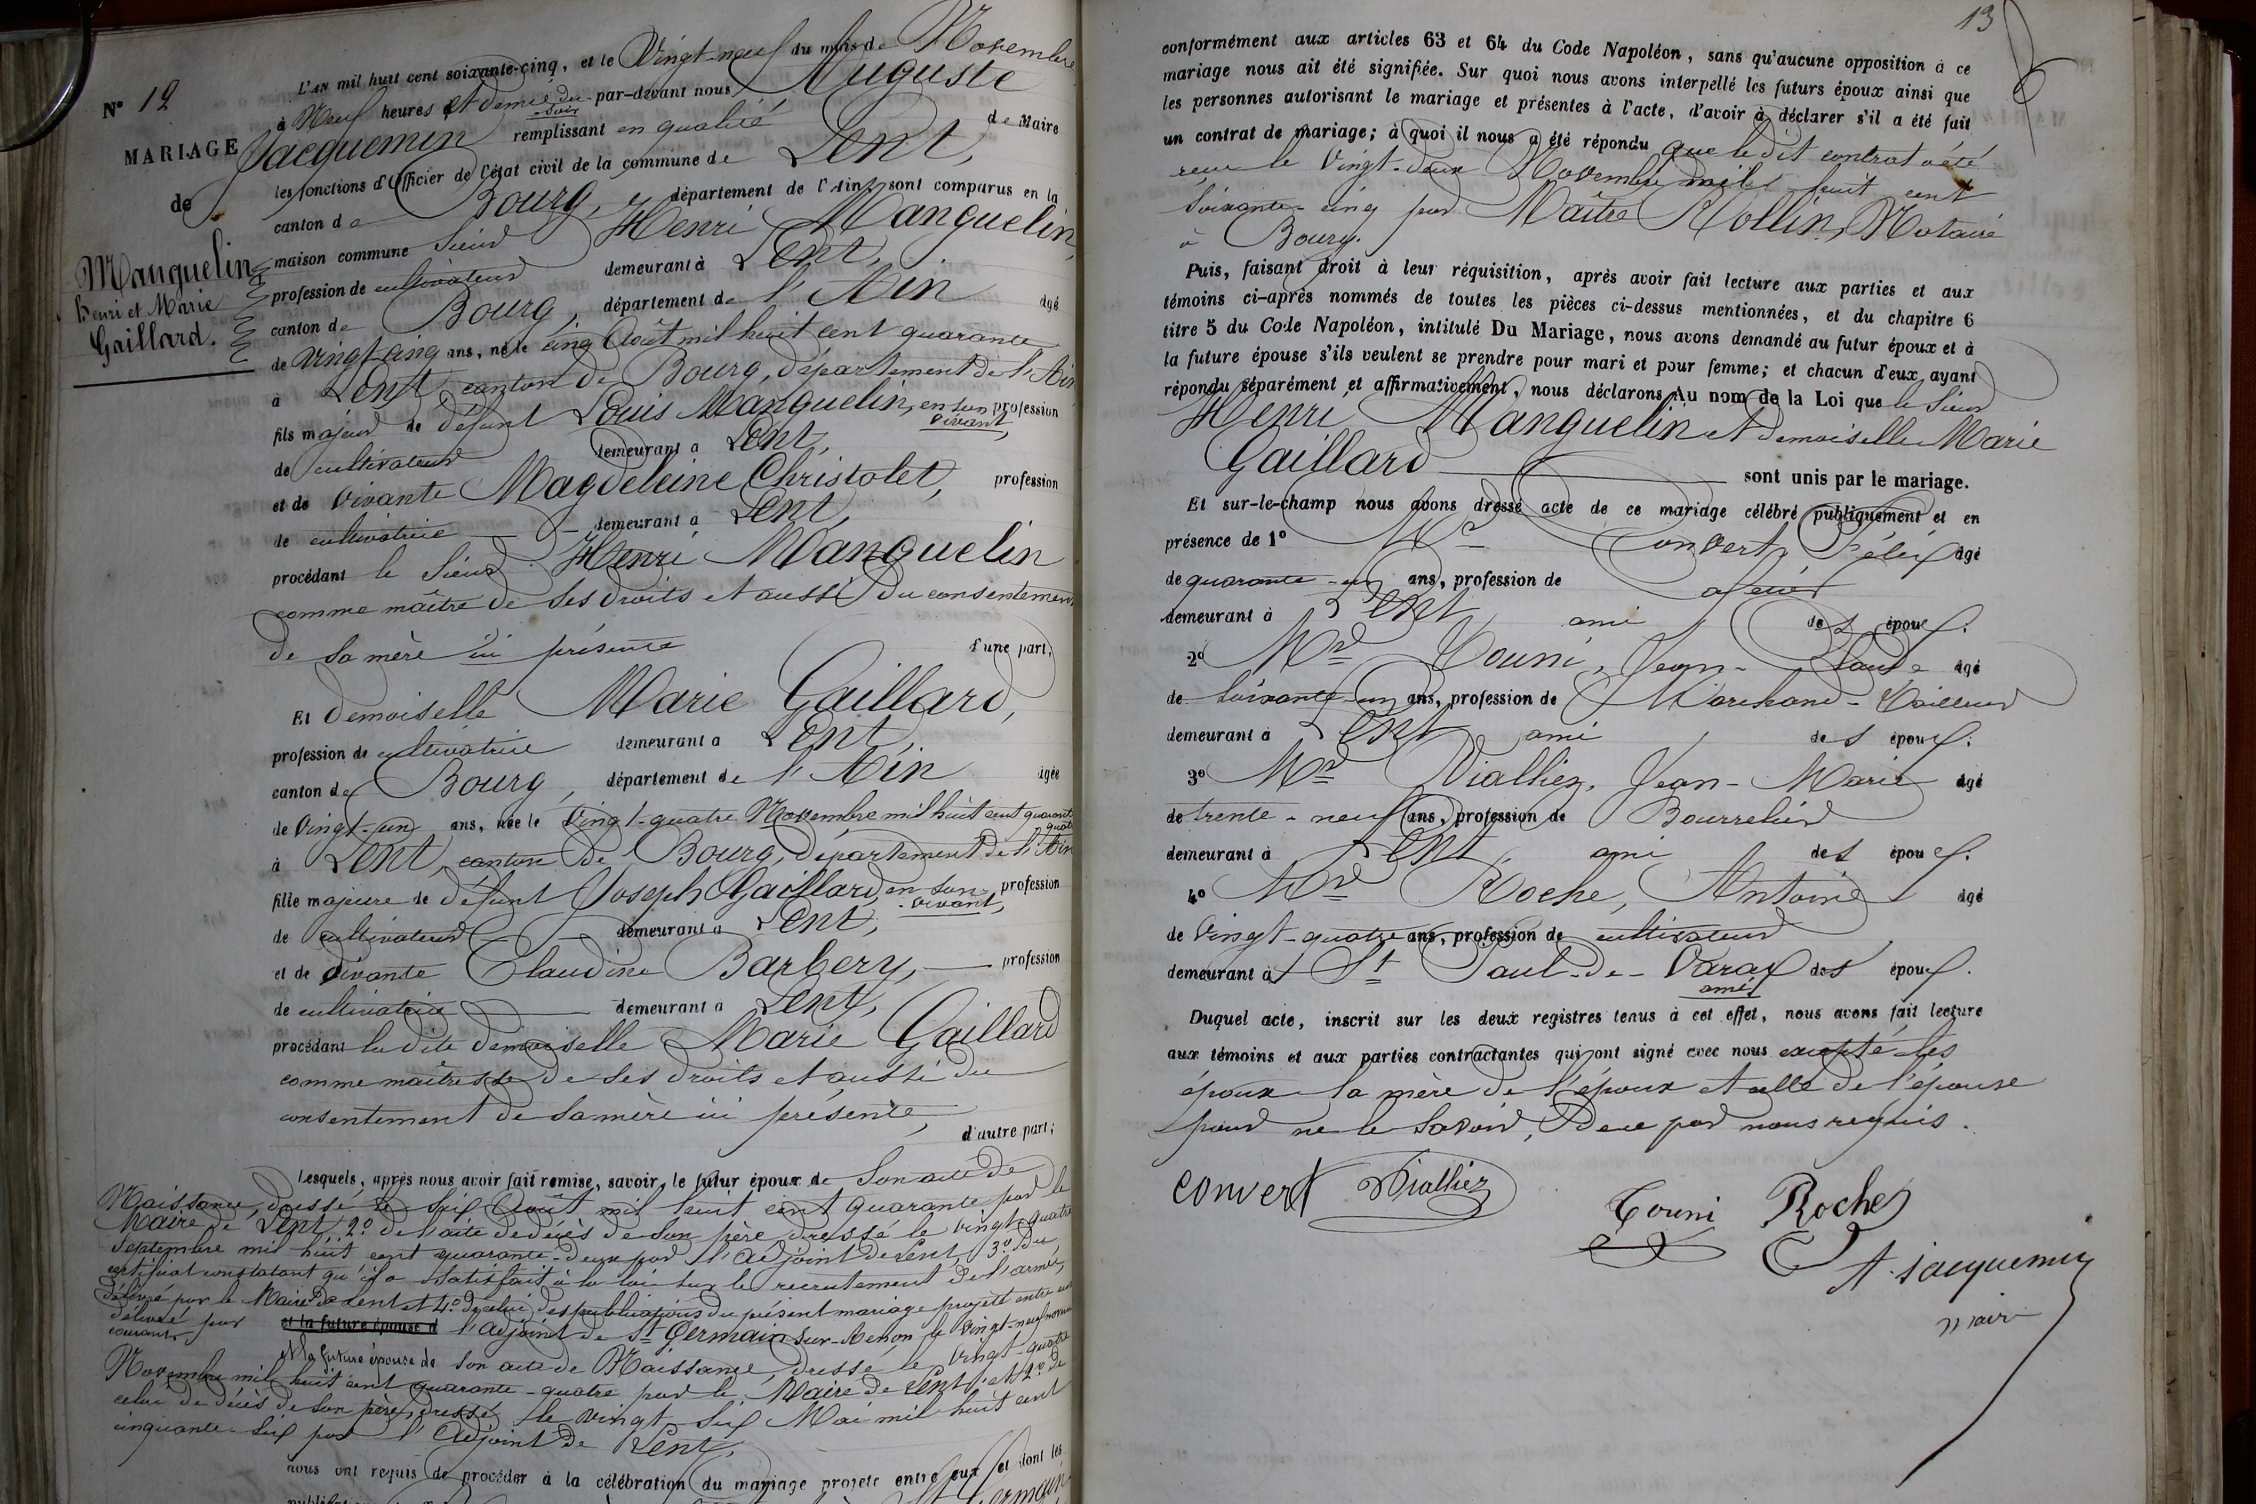 L'AN mil huit cent soixante-cinq, et le Vingt-neuf du mois de Novembre
à Neuf heures et demie du soir par-devant nous Auguste
Jacquemin remplissant en qualité de Maire
les fonctions d'Officier de l'état civil de la commune de Lent,
canton de Bourg, département de l'Ain, sont comparus en la
maison commune Sieur Henri Manguelin,
profession de cultivateur demeurant à Lent,
canton de Bourg, département de l'Ain âgé
de vingt-cinq ans, né le cinq Août mil huit cent quarante
à Lent canton de Bourg, département de l'Ain
fils majeur de défunt Louis Manguelin, en son vivant, profession
de cultivateur demeurant à Lent,
et de vivante Magdeleine Christolet, profession
de cultivatrice demeurant à Lent,
procédant le Sieur Henri Manguelin
comme maître de ses droits et aussi du consentement
de sa mère ici présente d'une part;
Et demoiselle Marie Gaillard,
profession de cultivatrice demeurant à Lent,
canton de Bourg, département de l'Ain âgée
de Vingt-un ans, née le vingt-quatre Novembre mil huit cent quarante quatre
à Lent, canton de Bourg, département de l'Ain
fille majeure de défunt Joseph Gaillard, en son vivant, profession
de cultivateur demeurant à Lent,
et de vivante Claudine Barbery, profession
de cultivatrice demeurant à Lent,
procédant la dite demoiselle Marie Gaillard
comme maîtresse de ses droits et aussi du
consentement de sa mère ici présente,
d'autre part;
Lesquels, après nous avoir fait remise, savoir, le futur époux de Son acte de
Naissance, dressé le six Août mil huit cent quarante par le
Maire de Lent, 2º de l'acte de décès de son père, dressé le vingt-quatre
Septembre mil huit cent quarante-deux par l'adjoint de Lent, 3º du
certificat constatant qu'il a satisfait à la loi sur le recrutement de l'armée,
délivré par le Maire de Lent et 4º de celui des publications du présent mariage projeté entre eux
délivré par et la future épouse d l'adjoint de St Germain-sur-Renon le vingt-neuf novembre
courant,
et la future épouse de son acte de Naissance, dressé le vingt-quatre
Novembre mil huit cent quarante-quatre par le Maire de Lent, et 2º de
celui de décès de son père, dressé le vingt-six Mai mil huit cent
cinquante-six par l'adjoint de Lent,
nous ont requis de procéder à la célébration du mariage projeté entre eux et dont les
Nº 12
MARIAGE
de
Manguelin
Henri et Marie
Gaillard.
13
conformément aux articles 63 et 64 du Code Napoléon, sans qu'aucune opposition à ce
mariage nous ait été signifiée. Sur quoi nous avons interpellé les futurs époux ainsi que
les personnes autorisant le mariage et présentes à l'acte, d'avoir à déclarer s'il a été fait
un contrat de mariage; à quoi il nous a été répondu que le dit contrat a été
reçu le Vingt-deux Novembre mil huit cent
Soixante-cinq par Maître Rollin, Notaire
à Bourg.
Puis, faisant droit à leur réquisition, après avoir fait lecture aux parties et aux
témoins ci-après nommés de toutes les pièces ci-dessus mentionnées, et du chapitre 6
titre 5 du Code Napoléon, intitulé Du Mariage, nous avons demandé au futur époux et à
la future épouse s'ils veulent se prendre pour mari et pour femme; et chacun d'eux ayant
répondu séparément et affirmativement, nous déclarons Au nom de la Loi que le Sieur
Henri Manguelin et demoiselle Marie
Gaillard sont unis par le mariage.
Et sur-le-champ nous avons dressé acte de ce mariage célébré publiquement et en
présence de 1º Mr Convert, Félix âgé
de quarante-un ans, profession de
demeurant à Lent ami des époux.
2º Mr Touni, Jean-Claude âgé
de soixante-un ans, profession de Marchand-Tailleur
demeurant à Lent ami des époux.
3º Mr Vialliez, Jean-Marie âgé
de trente-neuf ans, profession de Bourrelier
demeurant à Lent, ami des époux.
4º Mr Roche, Antoine âgé
de Vingt-quatre ans, profession de cultivateur
demeurant à St Paul-de-Varax ami des époux.
Duquel acte, inscrit sur les deux registres tenus à cet effet, nous avons fait lecture
aux témoins et aux parties contractantes qui ont signé avec nous excepté les
époux la mère de l'époux et celle de l'épouse
pour ne le savoir, De ce par nous requis.
Convert Vialliez
Touni Roche
A. Jacquemin
maire